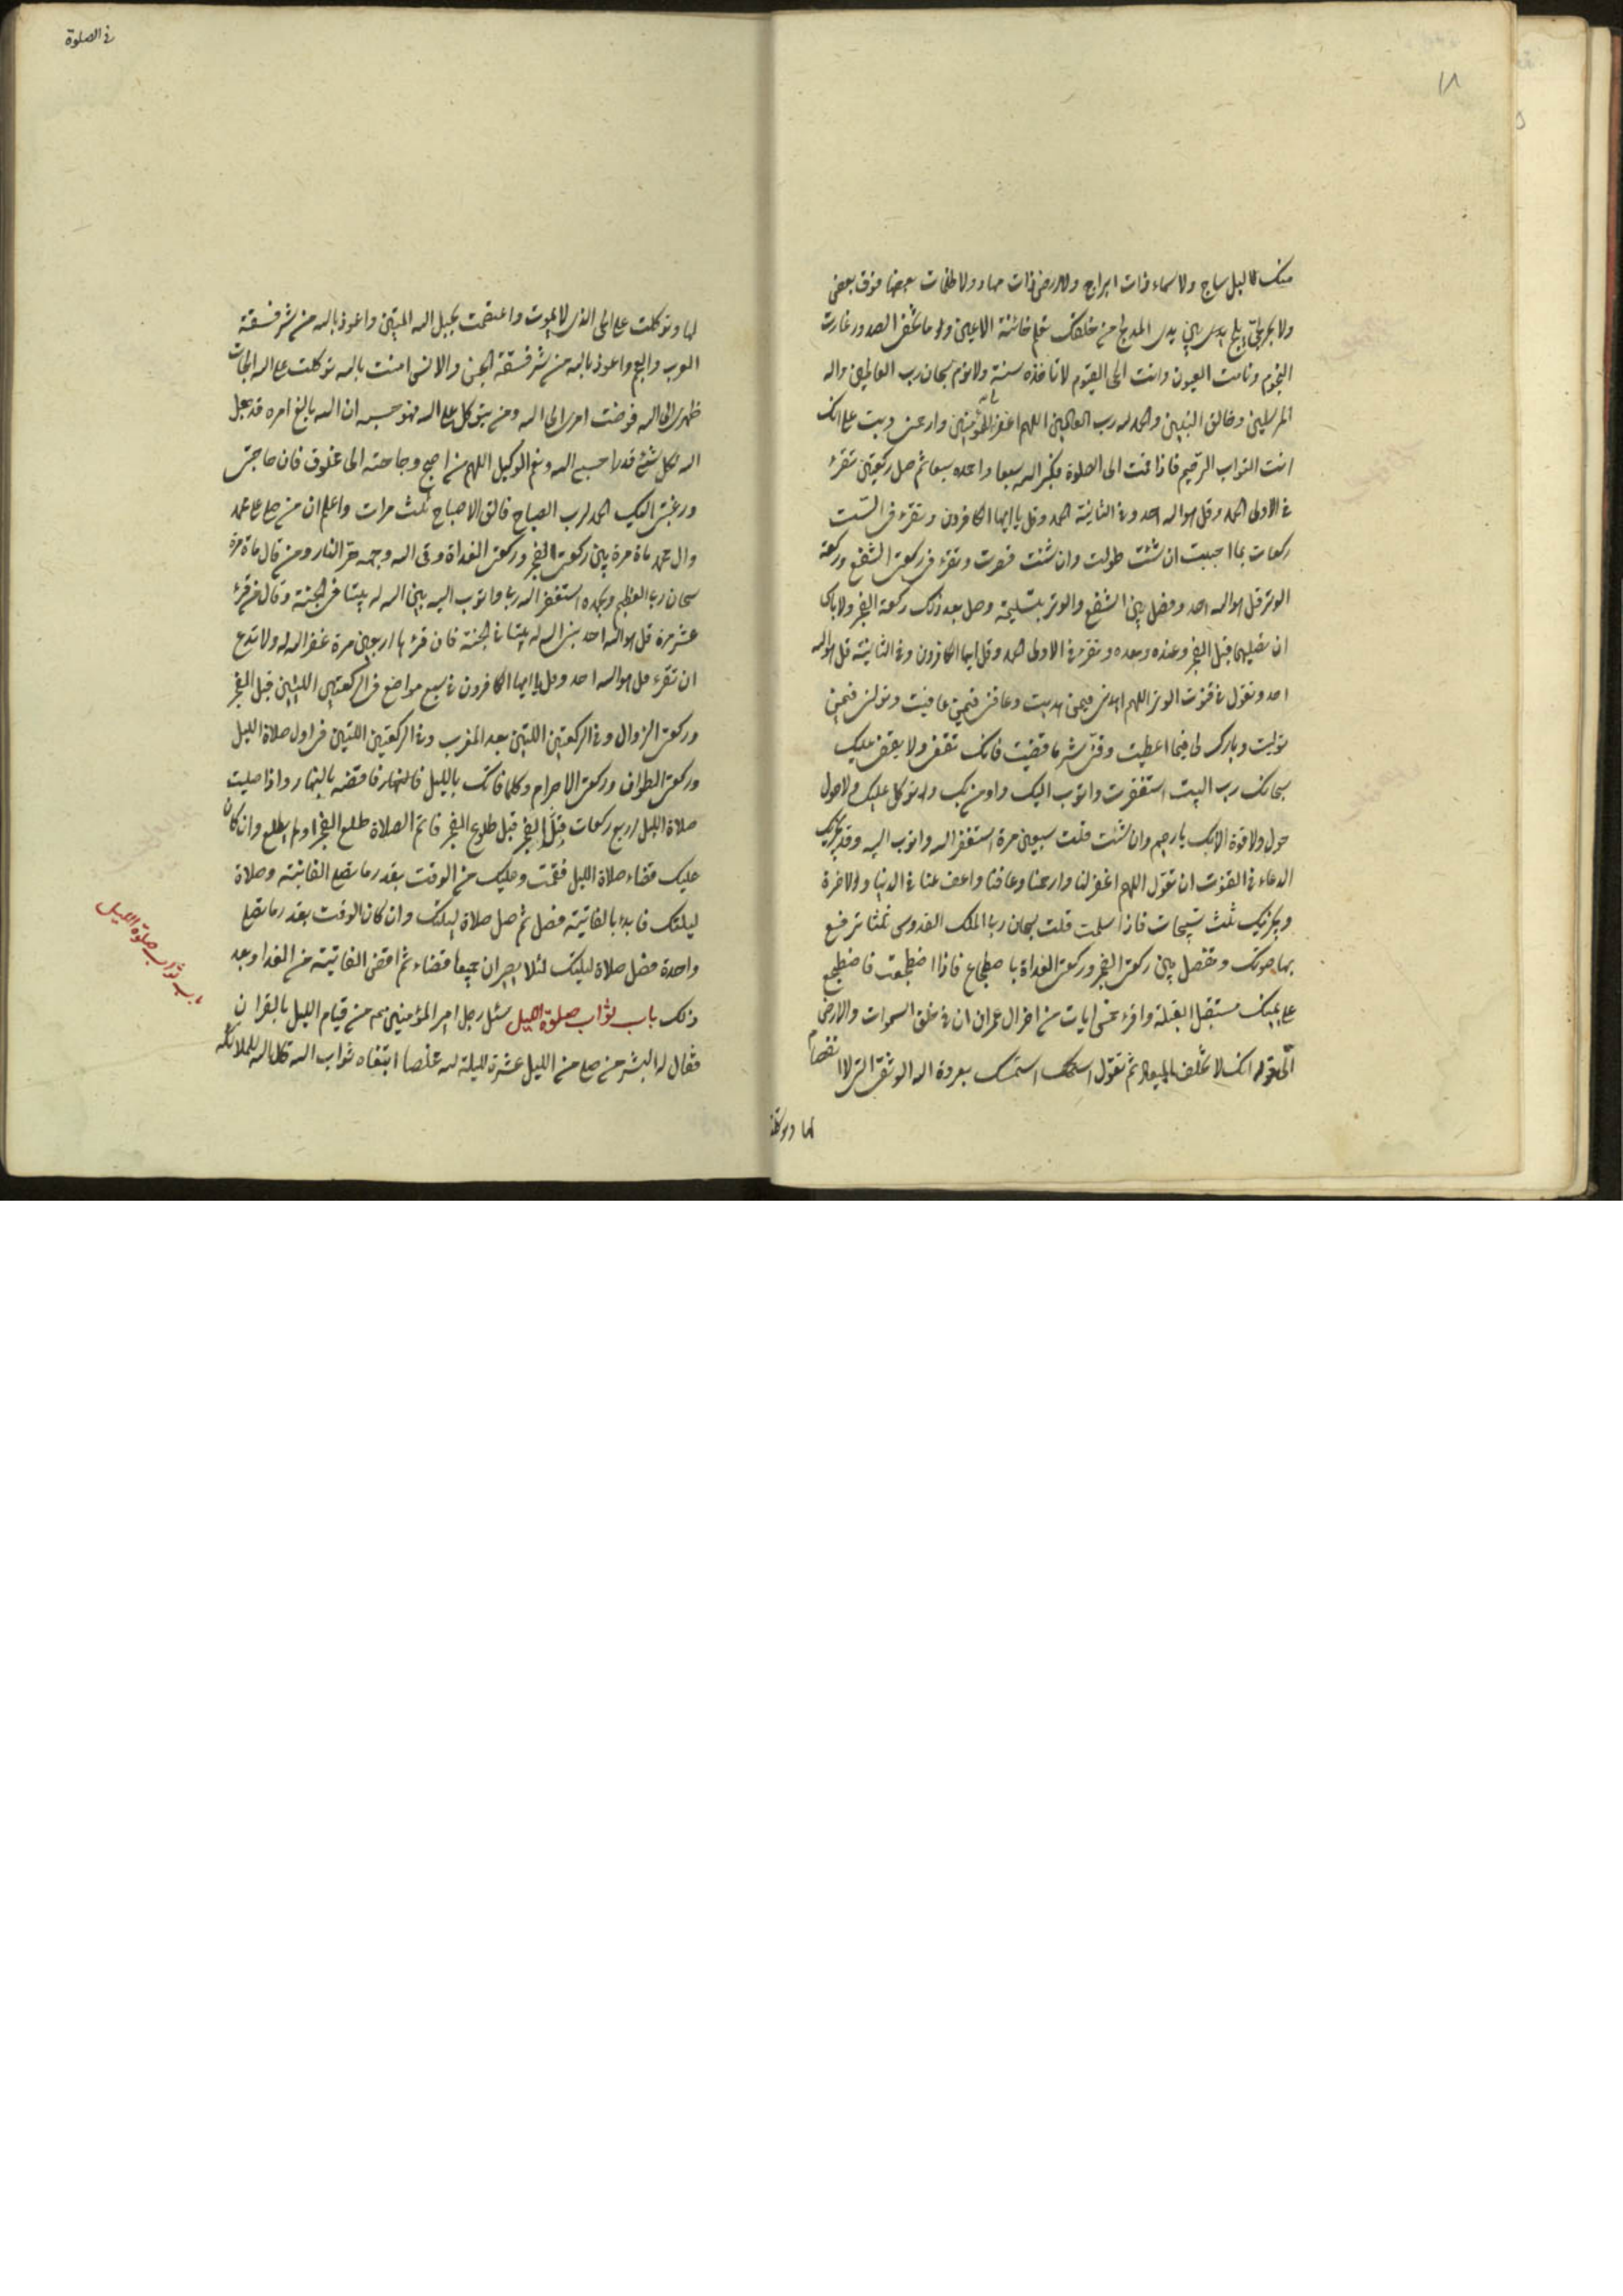 ١٨
منك لا ليل ساج ولا سماء ذات ابراج ولا ارض ذات مهاد ولا ظلمات بعضها فوق بعض
ولا بحر لجي يدلج بين يدى المدلج من خلقك تعلم خائنة الاعين وما تخفى الصدور غارت
النجوم ونامت العيون وانت الحى القيوم لا تاخذه سنة ولا نوم سبحان رب العالمين واله
المرسلين وخالق النبيين والحمد لله رب العالمين اللهم اغفر للمؤمنين وارحمنى وتب على انك
انت التواب الرحيم فاذا قمت الى الصلوة فكبر الله سبعا واحمده سبعا ثم صل ركعتين تقرء
فى الاولى الحمد وقل هو الله احد وفى الثانية الحمد وقل يا ايها الكافرون وتقرء فى الست
ركعات بما احببت ان شئت طولت وان شئت قصرت وتقرء فى ركعتى الشفع وركعة
الوتر قل هو الله احد وفصل بين الشفع والوتر بتسليمة وصل بعد ذلك ركعة الفجر ولا باس
ان تصليهما قبل الفجر وعنده وبعده وتقرء فى الاولى الحمد وقل ايها الكافرون وفى الثانية قل هو الله
احد وتقول فى قنوت الوتر اللهم اهدنى فيمن هديت وعافنى فيمن عافيت وتولنى فيمن
توليت وبارك لى فيما اعطيت وقنى شر ما قضيت فانك تقضى ولا يقضى عليك
سبحانك رب البيت استغفرت واتوب اليك واومن بك واتوكل عليك ولا حول
حول ولا قوة الا بك يا رحيم وان شئت قلت سبعين مرة استغفر الله واتوب اليه وقد يجزيك
الدعاء فى القنوت ان تقول اللهم اغفر لنا وارحمنا وعافنا واعف عنا فى الدنيا والاخرة
ويجزيك ثلث تسبيحات فاذا سلمت قلت سبحان ربى الملك القدوس ثلثا ترفع
بها صوتك وتفصل بين ركعتى الفجر وركعتى الغداة باضطجاع فاذا اضطجعت فاضطجع
على يمينك مستقبل القبلة واقرء خمس ايات من اخر ال عمران ان فى خلق السموات والارض
الى قوله انك لا تخلف الميعاد ثم تقول استمسك بعروة الله الوثقى التى لا انفصام
لها وتوكلت
فى الصلوة
لها وتوكلت على الحى الذى لا يموت واعتصمت بحبل الله المتين واعوذ بالله من شر فسقة
العرب والعجم واعوذ بالله من شر فسقة الجن والانس امنت بالله توكلت على الله الجات
ظهرى الى الله فوضت امرى الى الله ومن يتوكل على الله فهو حسبه ان الله بالغ امره قد جعل
الله لكل شئ قدرا حسبى الله ونعم الوكيل اللهم من اصبح وحاجته الى مخلوق فان حاجتى
ورغبتى اليك الحمد لرب الصباح فالق الاصباح ثلث مرات واعلم ان من صلى على محمد
وال محمد ماة مرة بين ركعتى الفجر وركعتى الغداة وقى الله وجهه حر النار ومن قال ماة مرة
سبحان ربى العظيم وبحمده استغفر الله ربى واتوب اليه بنى الله له بيتا فى الجنة وقال من قرء
عشر مرة قل هو الله احد بنى الله له بيتا فى الجنة فان قرئها اربعين مرة غفر الله له ولا تدع
ان تقرء قل هو الله احد وقل يا ايها الكافرون فى سبع مواضع فى الركعتين اللتين قبل الفجر
وركعتى الزوال وفى الركعتين اللتين بعد المغرب وفى الركعتين اللتين فى اول صلاة الليل
وركعتى الطواف وركعتى الاحرام وكلما فاتك بالليل فاقضه بالنهار واذا صليت
صلاة الليل اربع ركعات قبل الفجر قبل طلوع الفجر فاتم الصلاة طلع الفجر او لم يطلع وان كان
عليك قضاء صلاة الليل فقمت وعليك من الوقت بقدر ما تصلى الفائتة وصلاة
ليلتك فابدء بالفائتة فصل ثم صل صلاة ليلتك وان كان الوقت بقدر ما تصلى
واحدة فصل صلاة ليلتك لئلا يصيران جميعا قضاء ثم اقض الفائتة من الغد او بعد
ذلك باب ثواب صلوة الليل سئل رجل امير المؤمنين عن قيام الليل بالقران
فقال له ابشر من صلى من الليل عشرة ليلة لله مخلصا ابتغاء ثواب الله قال الله لملائكته
باب ثواب صلوة الليل